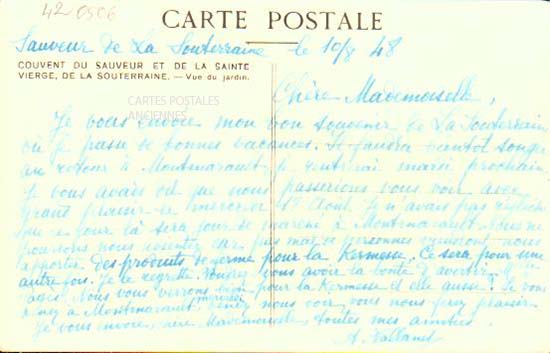 42 0906
CARTE POSTALE
Sauveur de La Souterraine le 10/8 48
COUVENT DU SAUVEUR ET DE LA SAINTE
VIERGE, DE LA SOUTERRAINE. — Vue du jardin.
CARTES POSTALES
ANCIENNES
Chère Mademoiselle,
Je vous envoie mon bon souvenir de La Souterraine
où je passe de bonnes vacances. Il faudra bientôt songer
au retour à Montmarault je rentrerai mardi prochain
Je vous avais dit que nous passerions vous voir avec
grand plaisir le mercredi Août. Je n'avais pas réfléchi
que ce jour là sera jour de marché à Montmarault. Nous ne
pouvons nous car pas mal de personnes viendront nous
apporter des produits de ferme pour la Kermesse. Ce sera pour une
autre fois. Je le regrette. Voudrez vous avoir la bonté d'avertir
Nous vous verrons bien pour la Kermesse et elle aussi? Si vous
à Montmarault, mercredi venez nous voir, vous nous ferez plaisir.
Je vous envoie, chère Mademoiselle, toutes mes amitiés.
A.